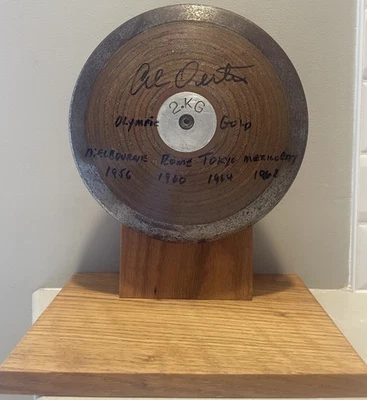 Al Oerter
2.KG
Olympic Gold
Melbourne Rome Tokyo Mexico City
1956 1960 1964 1968